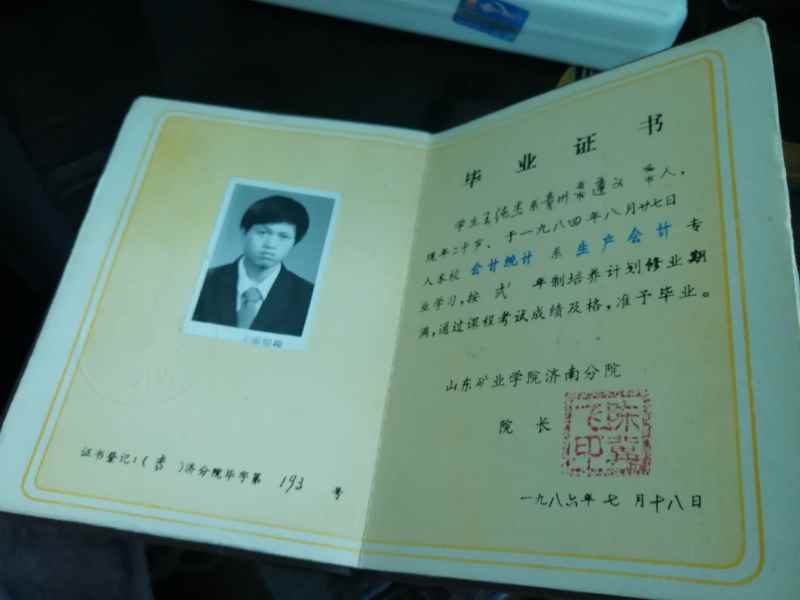 证书登记：( )济分院毕字第 193 号
毕业证书
学生王 系贵州省市遵义县市人，
现年二十岁、于一九八四年八月廿七日
入本校 会计统计 系 生产会计 专
业学习，按 弍 年制培养计划修业期
满，通过课程考试成绩及格，准予毕业。
山东矿业学院济南分院
院 长
一九八六年 七 月十八日